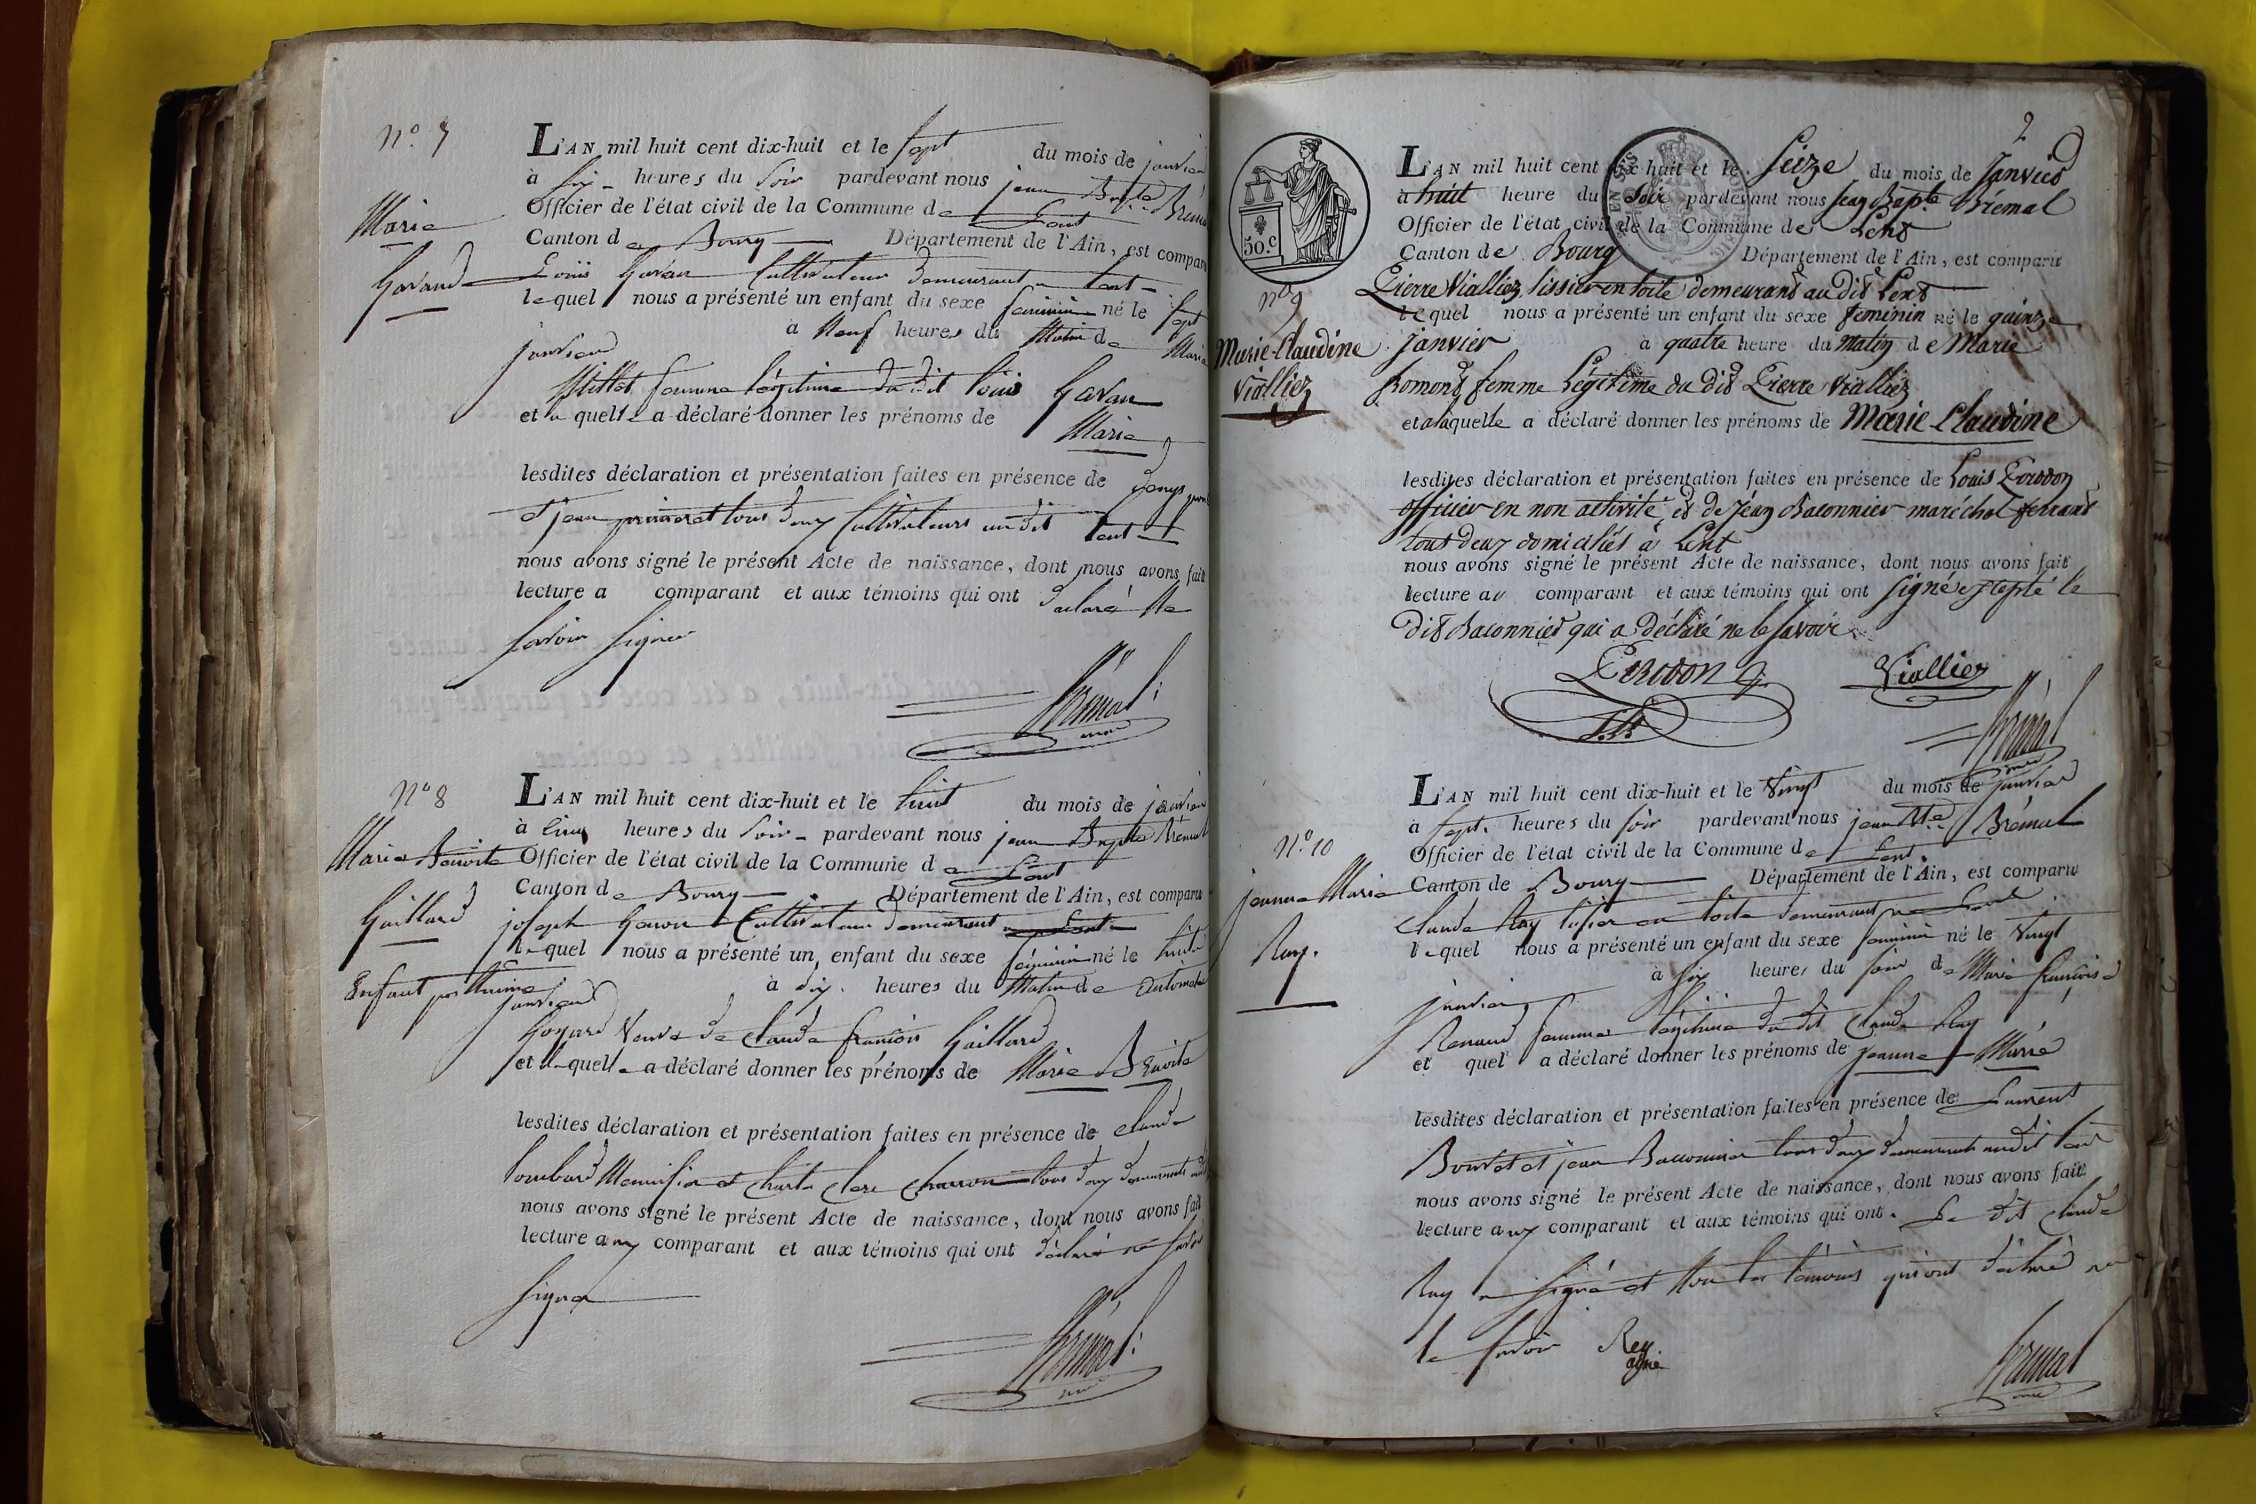 N.º 7
L'AN mil huit cent dix-huit et le sept du mois de janvier
à six heures du soir pardevant nous jean Bapte Brémal
Officier de l'état civil de la Commune de Lent
Marie
Canton de Bourg Département de l'Ain, est comparu
Gavand
Louis Gavau Cultivateur demeurant a Lent
lequel nous a présenté un enfant du sexe feminin né le sept
janvier à Neuf heures du Matin de Marie
Millet femme légitime du dit louis Gavau
et a quelle a déclaré donner les prénoms de Marie
lesdites déclaration et présentation faites en présence de Denys
et jean tous deux Cultivateurs au dit Lent
nous avons signé le présent Acte de naissance, dont nous avons fait
lecture a comparant et aux témoins qui ont déclaré Ne
savoir signer
Brémal
N.º 8
L'AN mil huit cent dix-huit et le huit du mois de janvier
à cinq heures du soir pardevant nous jean Bapte Brémal
Marie Benoite Officier de l'état civil de la Commune de Lent
Canton de Bourg Département de l'Ain, est comparu
Gaillard
joseph Cultivateur demeurant a Lent
lequel nous a présenté un enfant du sexe féminin né le huit
Enfant posthume
janvier à dix heures du Matin de Antoinette
Goyard Veuve de Claude françois Gaillard
et a quelle a déclaré donner les prénoms de Marie Benoite
lesdites déclaration et présentation faites en présence de Claude
Lombard Menuisier et Charle Clerc Charron tous deux demeurants
nous avons signé le présent Acte de naissance, dont nous avons fait
lecture aux comparant et aux témoins qui ont déclaré ne savoir
signer
Brémal
2
50.c
L'AN mil huit cent dix-huit et le Seize du mois de Janvier
à huit heure du Soir pardevant nous Jean Bapte Brémal
Officier de l'état civil de la Commune de Lent
Canton de Bourg Département de l'Ain, est comparu
Pierre Vialliez tissier en toile demeurant au dit Lent
Nº 9
lequel nous a présenté un enfant du sexe feminin né le quinze
Marie-Claudine
janvier à quatre heure du matin de Marie
Vialliez
Romond femme Légitime du dit Pierre Vialliez
et a laquelle a déclaré donner les prénoms de Marie Claudine
lesdites déclaration et présentation faites en présence de Louis Perodon
officier en non activité et de Jean Baconnier maréchal ferrant
tous deux domiciliés à Lent
nous avons signé le présent Acte de naissance, dont nous avons fait
lecture au comparant et aux témoins qui ont signé excepté le
dit Baconnier qui a déclaré ne le savoir
Perodon Vialliez
Brémal
L'AN mil huit cent dix-huit et le Vingt du mois de janvier
à sept heures du soir pardevant nous jean Bte Brémal
N.º 10
Officier de l'état civil de la Commune de Lent
Jeanne Marie
Canton de Bourg Département de l'Ain, est comparu
Claude Ray tissier en toile demeurant a Lent
Ray.
lequel nous a présenté un enfant du sexe feminin né le Vingt
janvier à six heures du soir de Marie françoise
Renaud femme légitime du dit Claude Ray
et quel a déclaré donner les prénoms de Jeanne Marie
lesdites déclaration et présentation faites en présence de Laurent
Bouvet et jean Baconnier tous deux demeurants audit Lent
nous avons signé le présent Acte de naissance, dont nous avons fait
lecture aux comparant et aux témoins qui ont. Le dit Claude
Ray a signé et Non les témoins qui ont déclaré ne
le savoir Rey
Brémal